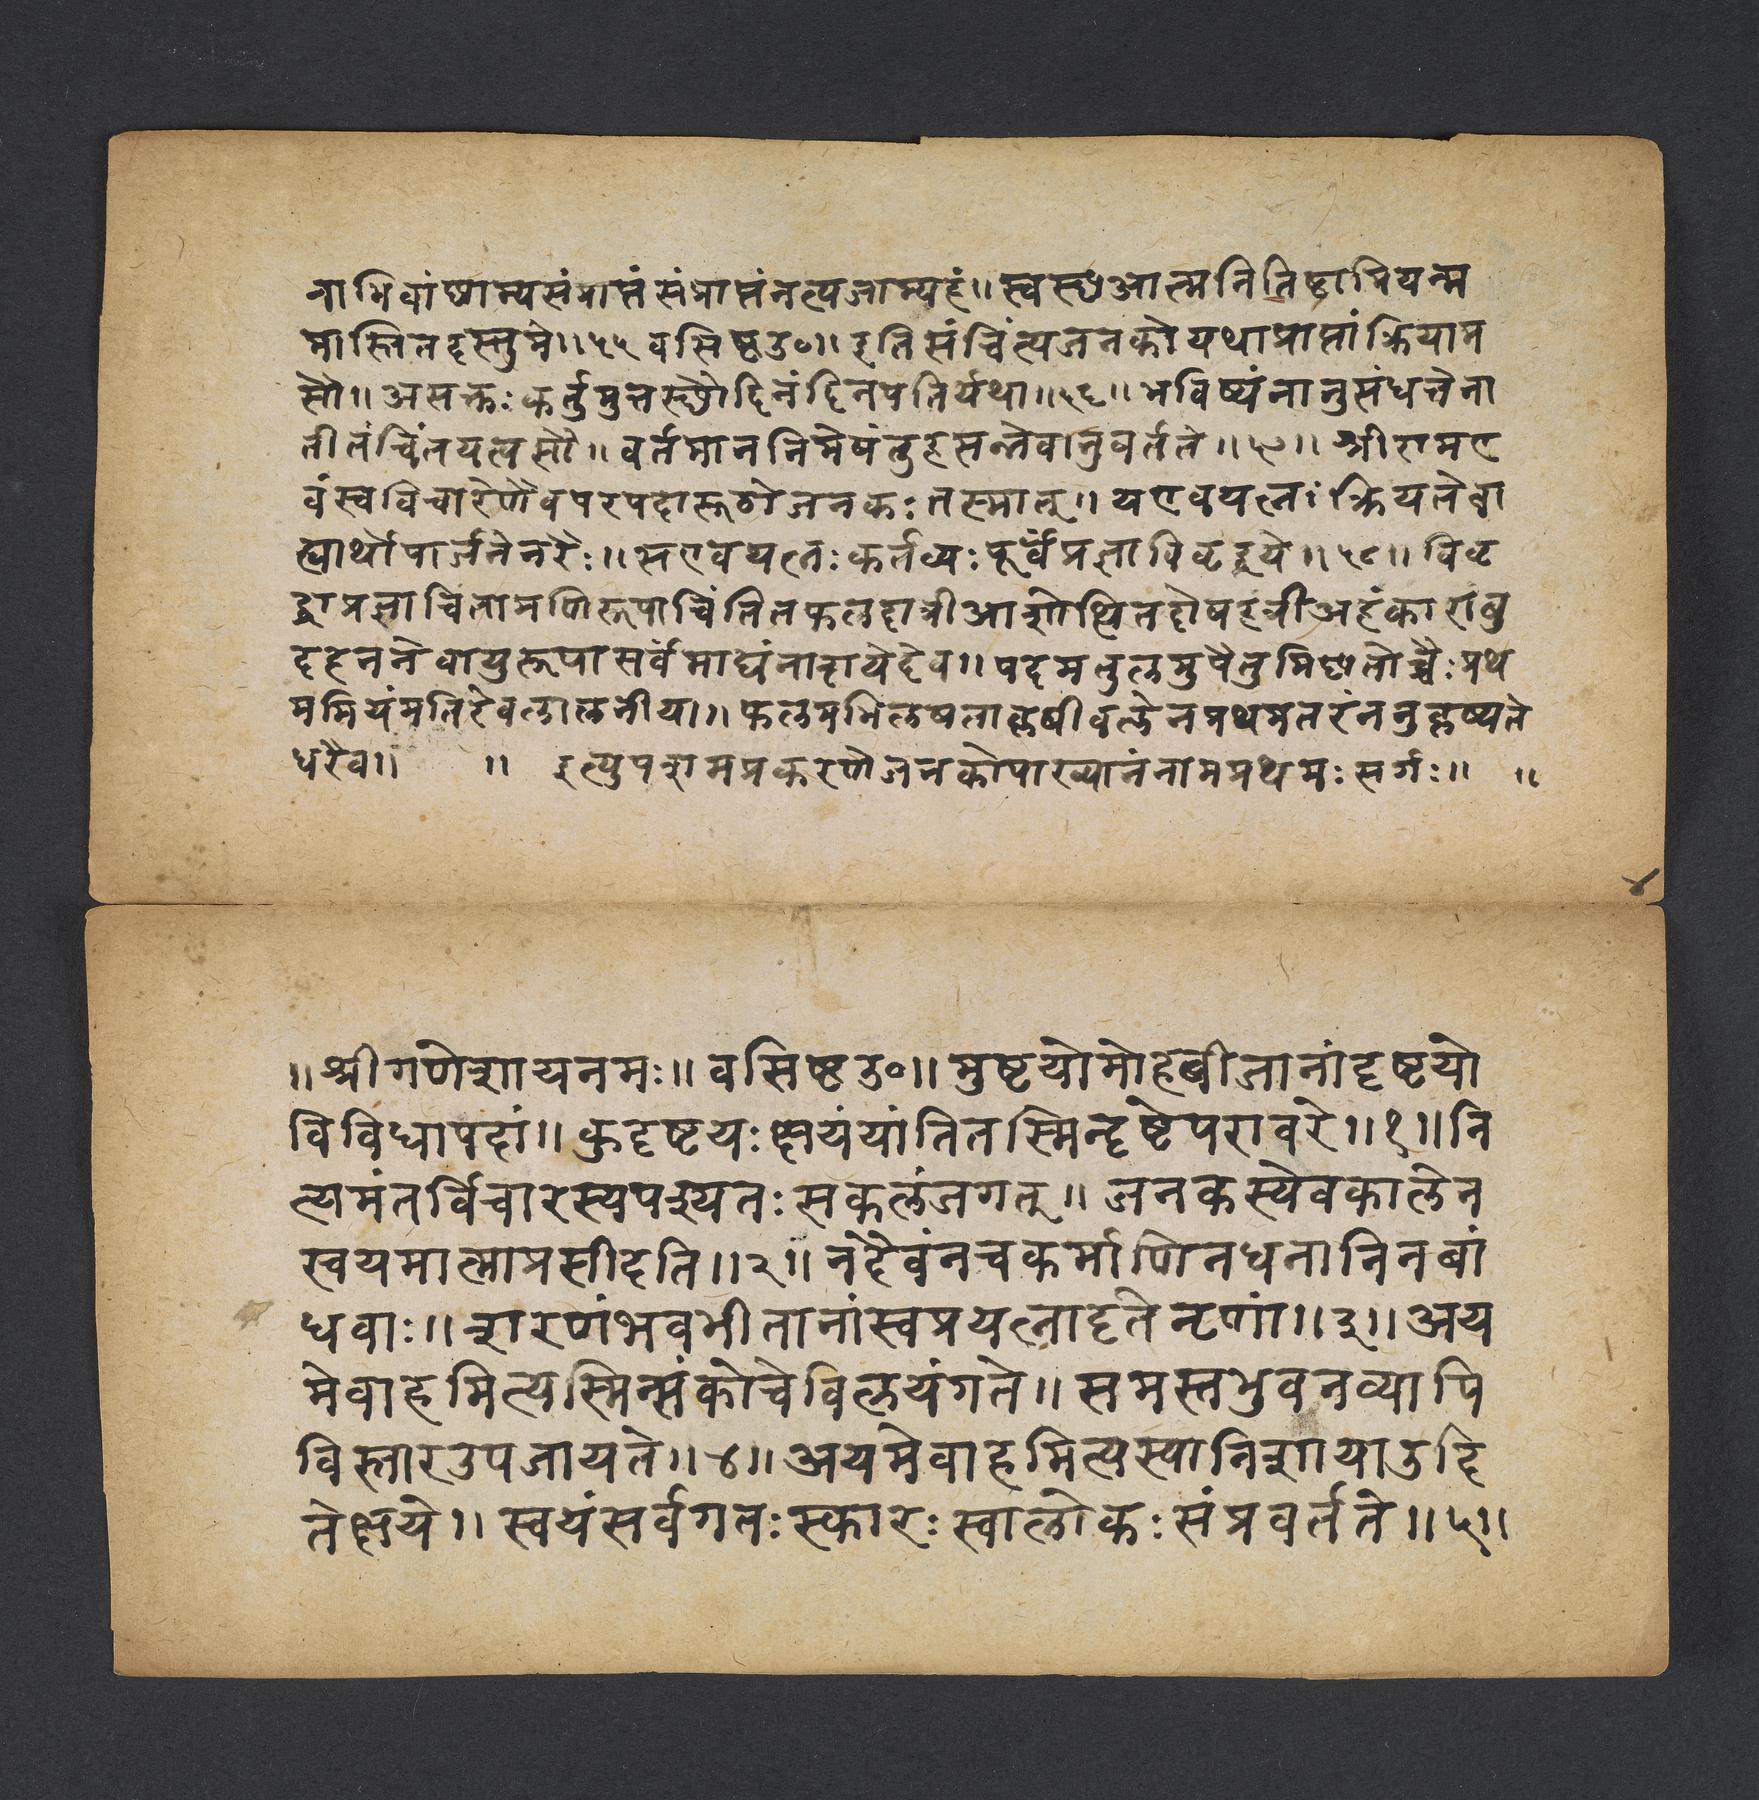 नाभिवांछाम्यसंप्राप्तंसंप्राप्तंनत्यजाम्यहं॥स्वस्छआत्मनितिष्टामियन्म
मास्तितदस्तुमे॥५५वसिष्टउ०॥इतिसंचिंत्यजनकोयथाप्राप्तांक्रियाम
सौ॥असक्तःकर्तुमुत्तस्थौदिनंदिनपतिर्यथा॥५६॥भविष्यंनानुसंधत्तेना
तीतंचिंतयत्यसौ॥वर्तमाननिमेषंतुहसन्नेवानुवर्तते॥५७॥श्रीरामए
वंस्वविचारेणैवपरपदारूढोजनकःतस्मात्॥यएवयत्नःक्रियतेबा
ह्यार्थोपार्जनेनरैः॥सएवयत्नःकर्तव्यःपूर्वंप्रज्ञाविवृद्धये॥५८॥विवृ
द्धाप्रज्ञाचिंतामणिरूपाचिंतितफलदात्रीआशोत्थितदोषहंत्रीअहंकारांबु
दहननेवायुरूपासर्वमाद्यंनाशयेदेव॥पदमतुलमुपैतुमिछतोच्चैःप्रथ
ममियंमतिरेवलालनीया॥फलमभिलषताकृषीवलेनप्रथमतरंननुकृष्यते
धरैव॥ ॥ इत्युपशमप्रकरणेजनकोपाख्यानंनामप्रथमःसर्गः॥ ॥
४
॥श्रीगणेशायनमः॥वसिष्टउ०॥मुष्टयोमोहबीजानांदृष्टयो
विविधापदां॥कुदृष्टयःक्षयंयांतितस्मिन्दृष्टेपरावरे॥१॥नि
त्यमंतर्विचारस्यपश्यतःसकलंजगत्॥जनकस्येवकालेन
स्वयमात्माप्रसीदति॥२॥नदैवंनचकर्माणिनधनानिनबां
धवाः॥शरणंभवभीतानांस्वप्रयत्नादृतेनृणां॥३॥अय
मेवाहमित्यस्मिन्संकोचेविलयंगते॥समस्तभुवनव्यापि
विस्तारउपजायते॥४॥अयमेवाहमित्यस्यानिशायाउदि
तेक्षये॥स्वयंसर्वगतःस्फारःस्वालोकःसंप्रवर्तते॥५॥